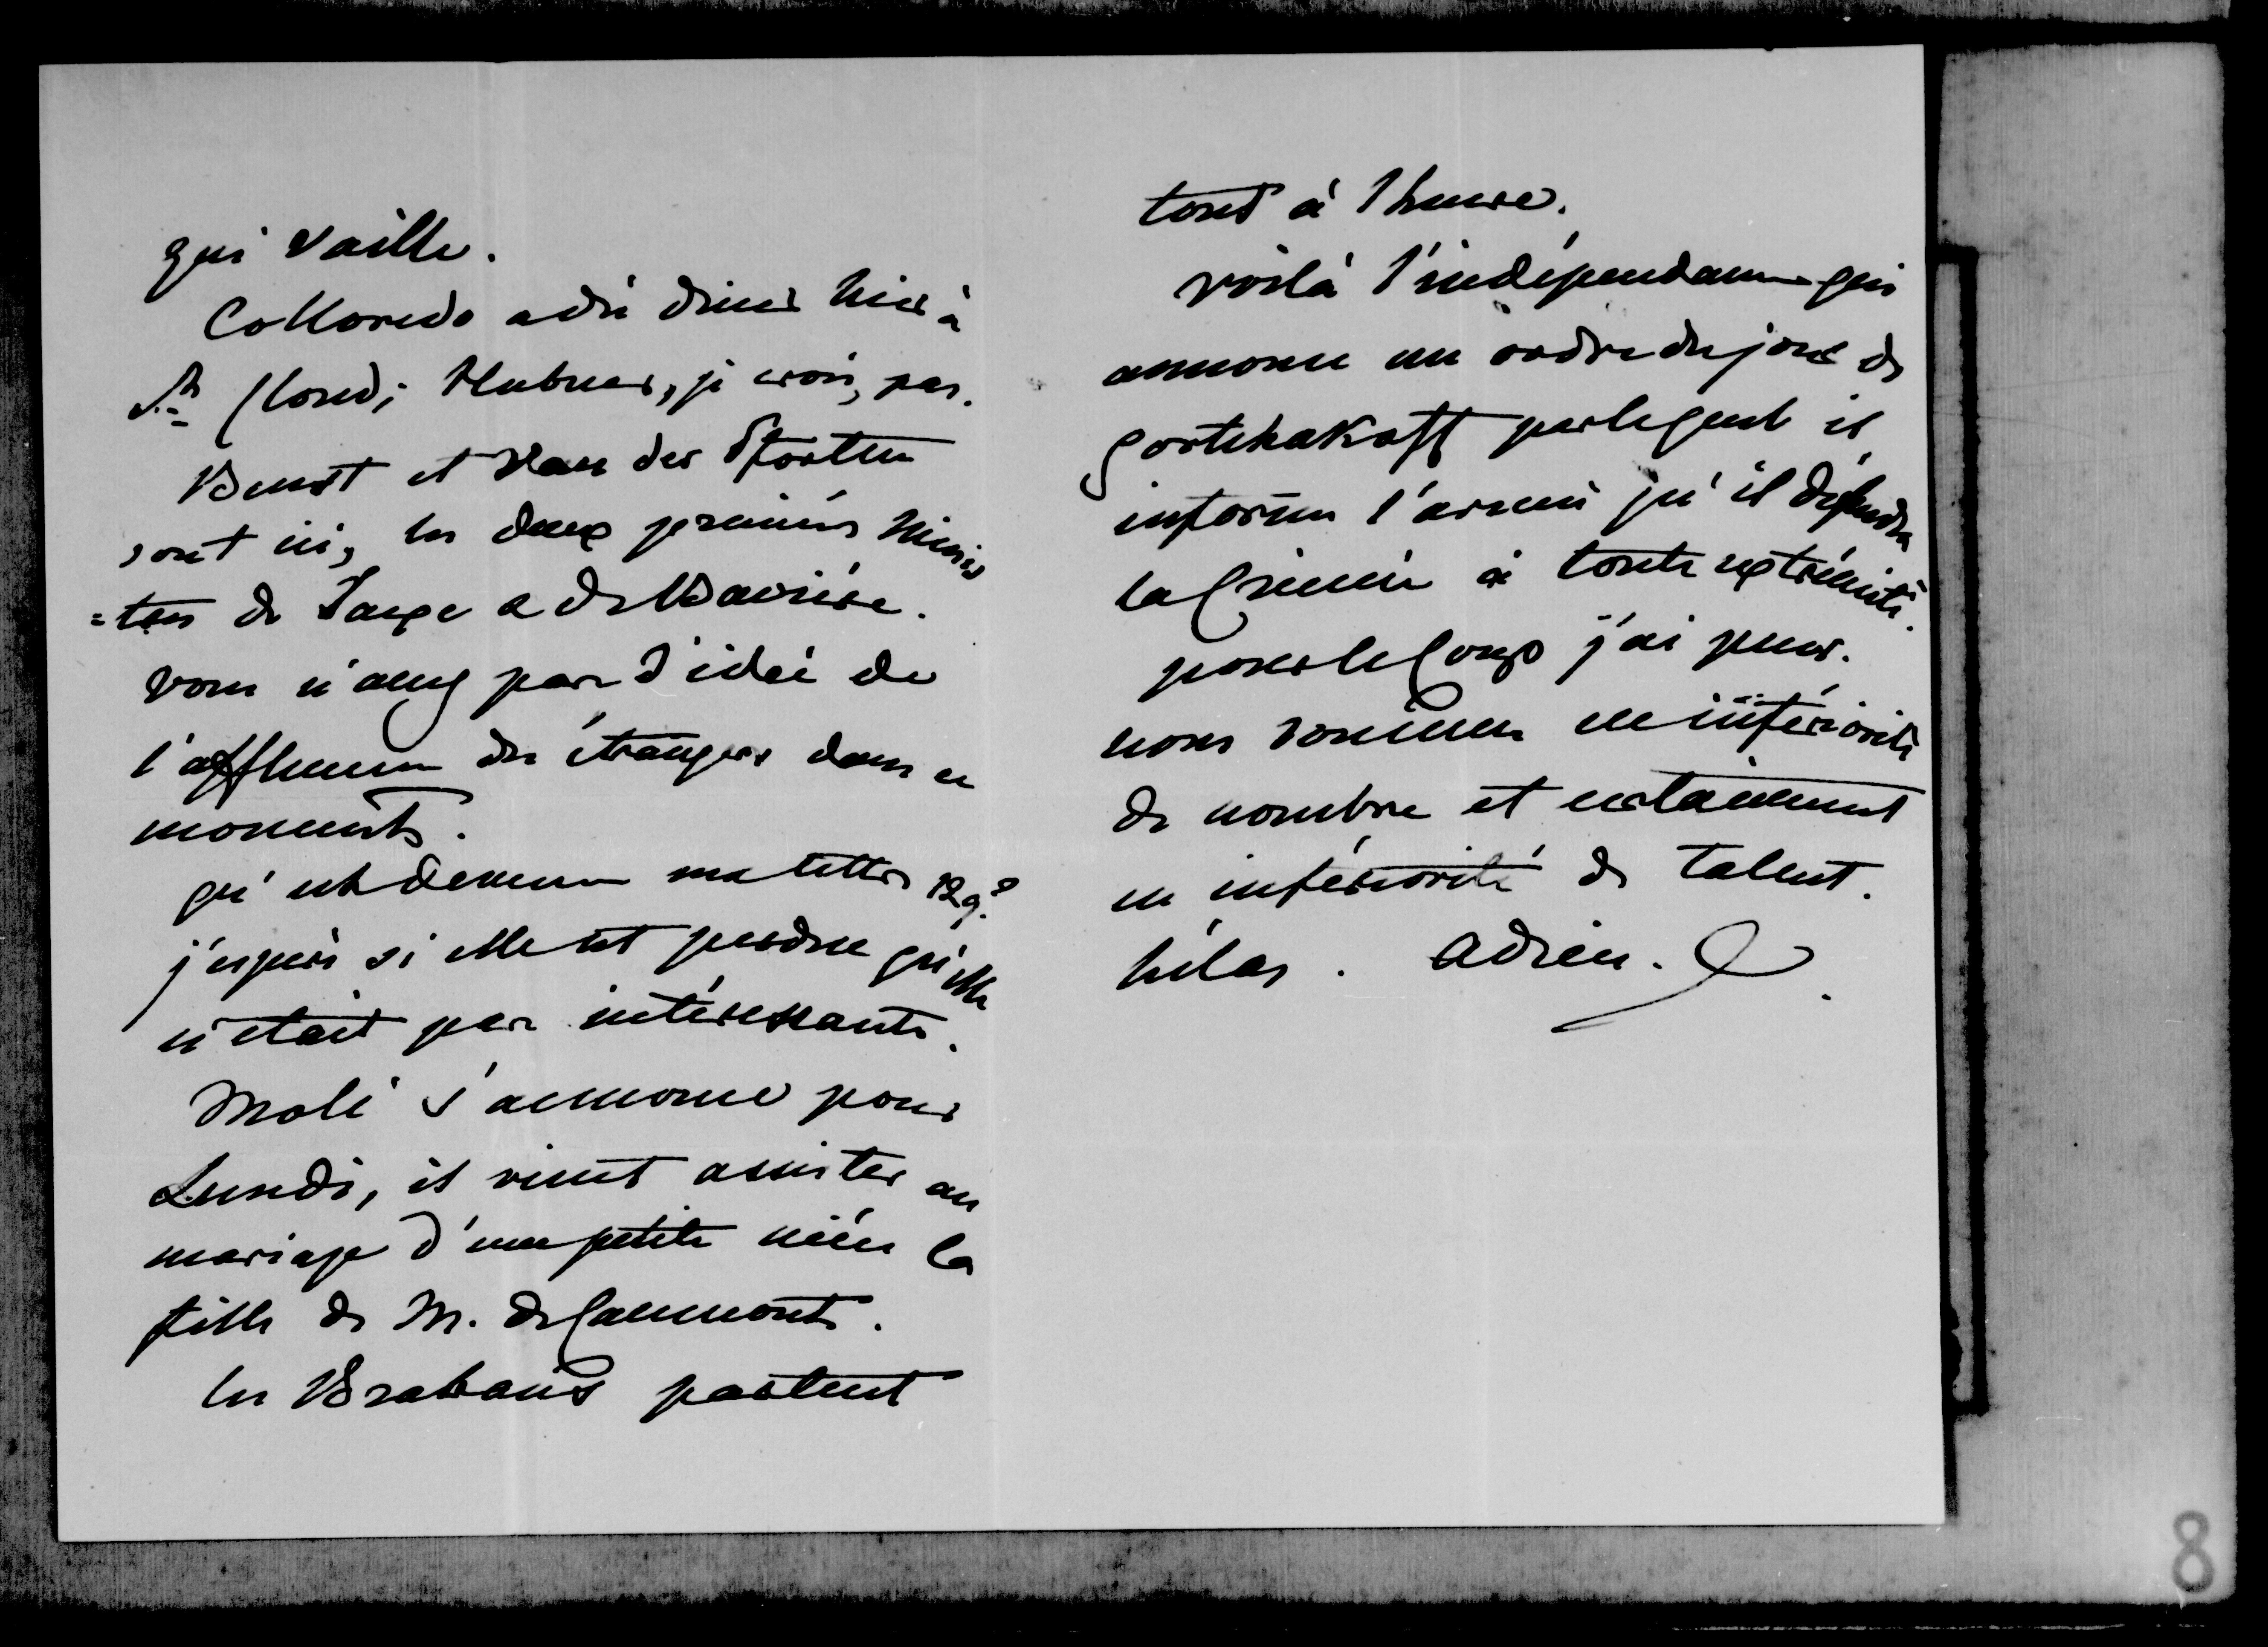 qui vaille.
Colloredo a dû diner hier à
St Cloud ; Hubner, je crois, pas.
Beust et Van der Pfortten
sont ici, les deux premiers minis
=tres de Saxe & de Bavière.
vous n'avez pas d'idée de
l'affluence des étrangers dans ce
moment.
qu'est devenue ma lettre 129 ?
j'espère si elle est perdue qu'elle
n'était pas intéressante.
Molé s'annonce pour
Lundi, il vient assister au
mariage d'une petite nièce la
fille de M. de Caumont.
les Brabant partent
tout à l'heure.
voilà l'indépendance qui
annonce un ordre du jour de
gortchakoff par lequel il
informe l'armée qu'il défendra
la Crimée à toute extrémité.
pour le coup j'ai peur.
nous sommes en infériorité
de nombre et certainement
en infériorité de talent.
hélas. adieu.
8